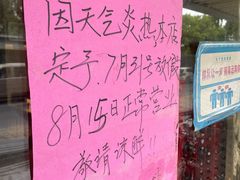 因天气炎热本店
定于7月31号放假
8月15日正常营业
敬请谅解!!